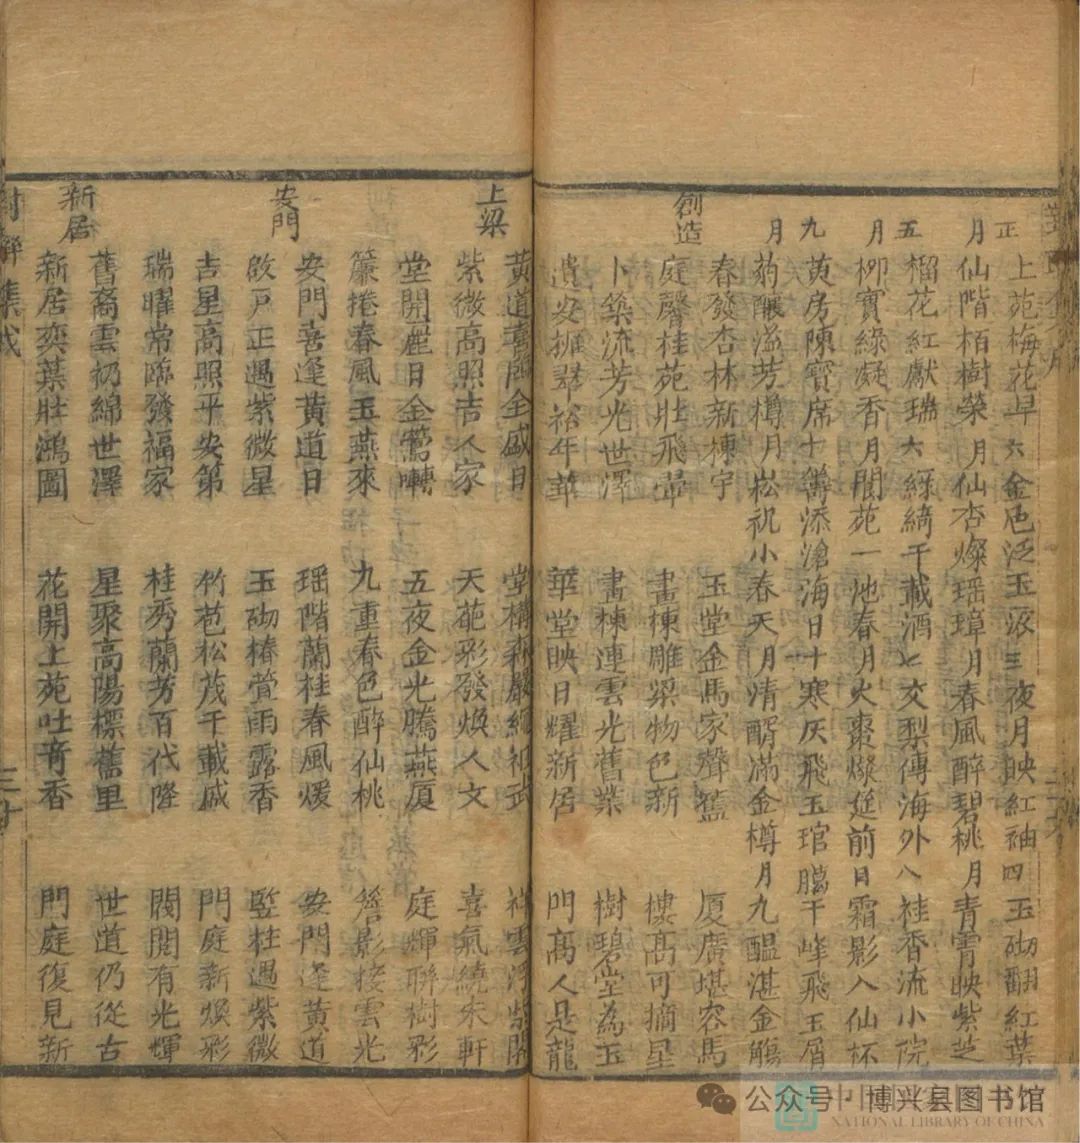 正 上苑梅花早 六 金卮泛玉液 三 夜月映紅袖 四 玉砌翻紅葉
月 仙階栢樹榮 月 仙杏燦瑶璋 月 春風醉碧桃 月 青霄映紫芝
五 榴花紅獻瑞 六 綠綺千載酒 七 交梨傳海外 八 桂香流小院
月 柳寳綠凝香 月 閬苑一池春 月 火棗燦筵前 日 霜影入仙杯
九 萸房陳寳席 十 籌添滄海日 十 寒灰飛玉琯 臘 千峰飛玉屑
月 菊釀溢芳樽 月 崧祝小春天 月 清醑滿金樽 月 九醖湛金觴
創造
春發杏林新棟宇 玉堂金馬家聲舊 厦廣堪容馬
庭馨桂苑壯飛翬 畫棟雕梁物色新 樓高可摘星
卜築流芳光世澤 畫棟連雲光舊業 樹碧堂為玉
遺安擁翠裕年華 華堂映日耀新居 門高人是龍
上梁
黄道喜 全盛日 堂構森嚴繩祖武 祥雲浮紫閣
紫微高照吉人家 天葩彩發煥人文 喜氣繞朱軒
堂開 日金鶯囀 五夜金光騰燕厦 庭輝聯樹彩
簾捲春風玉燕來 九重春色醉仙桃 簷影接雲光
安門
安門喜逢黄道日 瑶階蘭桂春風煖 安門逢黄道
啟戶正遇紫微星 玉砌椿萱雨露香 竪柱遇紫微
吉星高照平安第 竹苞松茂千載盛 門庭新煥彩
瑞曜常臨發福家 桂秀蘭芳百代隆 閥閱有光輝
新居
舊裔雲礽綿世澤 星聚高陽標舊里 世道仍從古
新居奕葉壯鴻圖 花開上苑吐奇香 門庭復見新
對聯集成
三十
公众号 · 博兴县图书馆
NATIONAL LIBRARY OF CHINA